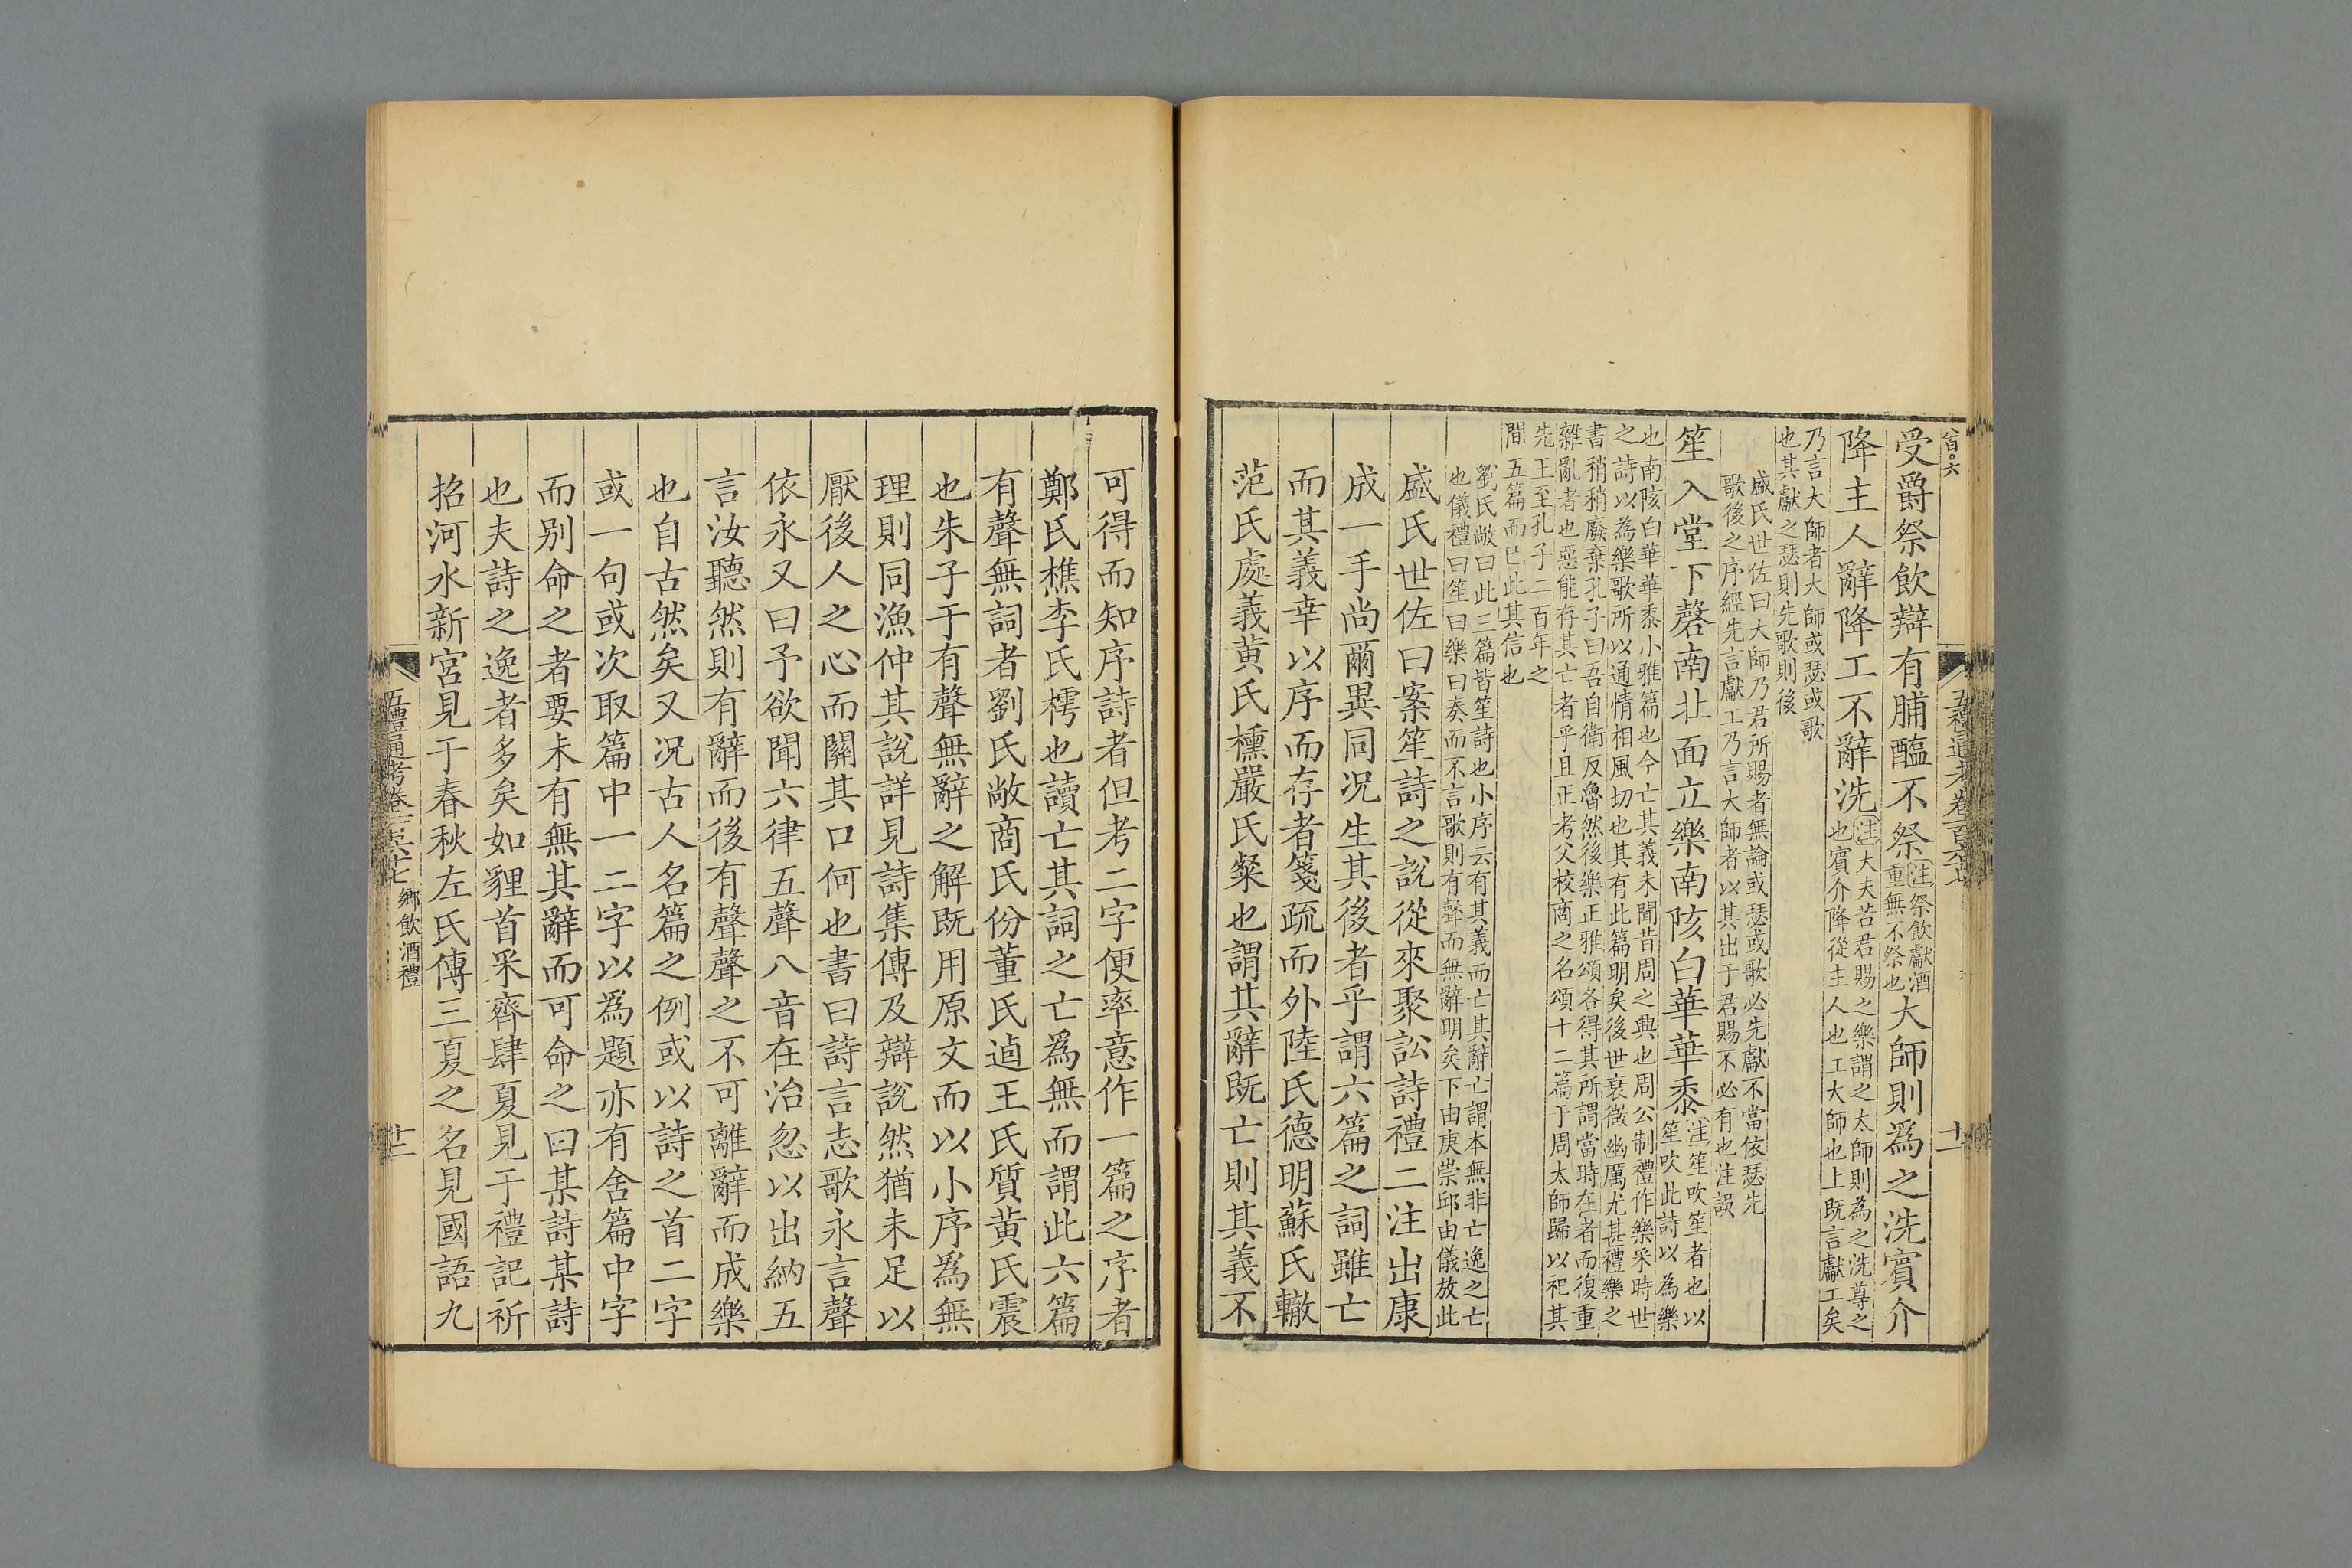 受爵祭飲辯有脯醢不祭注祭飲獻酒重無不祭也大師則爲之洗賓介
降主人辭降工不辭洗注大夫若君賜之樂謂之太師則為之洗尊之也賓介降從主人也工大師也上既言獻工矣
乃言大師者大師或瑟或歌也其獻之瑟則先歌則後
盛氏世佐曰大師乃君所賜者無論或瑟或歌必先獻不當依瑟先歌後之序經先言獻工乃言大師者以其出于君賜不必有也注誤
笙入堂下磬南北面立樂南陔白華華黍注笙吹笙者也以笙吹此詩以為樂
也南陔白華華黍小雅篇也今亡其義未聞昔周之興也周公制禮作樂采時世之詩以為樂歌所以通情相風切也其有此篇明矣後世衰微幽厲尤甚禮樂之
書稍稍廢棄孔子曰吾自衛反魯然後樂正雅頌各得其所謂當時在者而復重雜亂者也惡能存其亡者乎且正考父校商之名頌十二篇于周太師歸以祀其
先王至孔子二百年之間五篇而已此其信也
劉氏敞曰此三篇皆笙詩也小序云有其義而亡其辭亡謂本無非亡逸之亡也儀禮曰笙曰樂曰奏而不言歌則有聲而無辭明矣下由庚崇邱由儀放此
盛氏世佐曰案笙詩之說從來聚訟詩禮二注出康
成一手尚爾異同况生其後者乎謂六篇之詞雖亡
而其義幸以序而存者箋疏而外陸氏德明蘇氏轍
范氏處義黃氏櫄嚴氏粲也謂其辭既亡則其義不
五禮通考卷一百六十七
十一
可得而知序詩者但考二字便率意作一篇之序者
鄭氏樵李氏樗也讀亡其詞之亡爲無而謂此六篇
有聲無詞者劉氏敞商氏份董氏逌王氏質黃氏震
也朱子于有聲無辭之解既用原文而以小序爲無
理則同漁仲其說詳見詩集傳及辯說然猶未足以
厭後人之心而關其口何也書曰詩言志歌永言聲
依永又曰予欲聞六律五聲八音在治忽以出納五
言汝聽然則有辭而後有聲聲之不可離辭而成樂
也自古然矣又况古人名篇之例或以詩之首二字
或一句或次取篇中一二字以爲題亦有舍篇中字
而別命之者要未有無其辭而可命之曰某詩某詩
也夫詩之逸者多矣如貍首采齊肆夏見于禮記祈
招河水新宮見于春秋左氏傳三夏之名見國語九
五禮通考卷一百六十七 鄉飲酒禮
十二